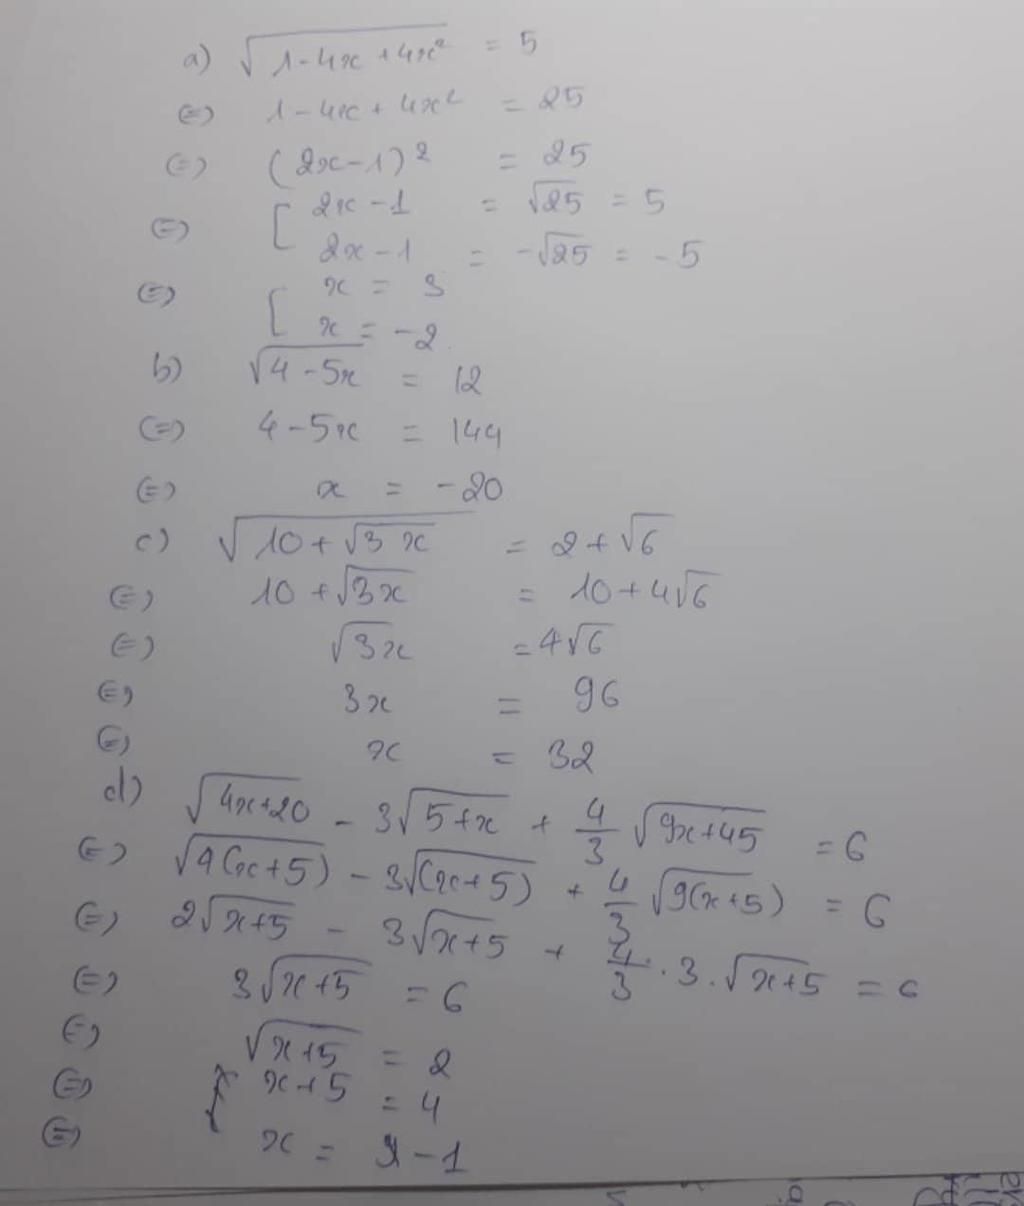 a) √(1-4x+4x²) = 5
(=) 1-4x+4x² = 25
(=) (2x-1)² = 25
(=) [ 2x-1 = √25 = 5
2x-1 = -√25 = -5
(=) [ x = 3
x = -2
b) √(4-5x) = 12
(=) 4-5x = 144
(=) x = -20
c) √(10+√3x) = 2+√6
(=) 10+√3x = 10+4√6
(=) √3x = 4√6
(=) 3x = 96
(=) x = 32
d) √(4x+20) - 3√(5+x) + 4/3 √(9x+45) = 6
(=) √(4(x+5)) - 3√((x+5)) + 4/3 √(9(x+5)) = 6
(=) 2√(x+5) - 3√(x+5) + 4/3 . 3 . √(x+5) = 6
(=) 3√(x+5) = 6
(=) √(x+5) = 2
(=) x+5 = 4
(=) x = -1